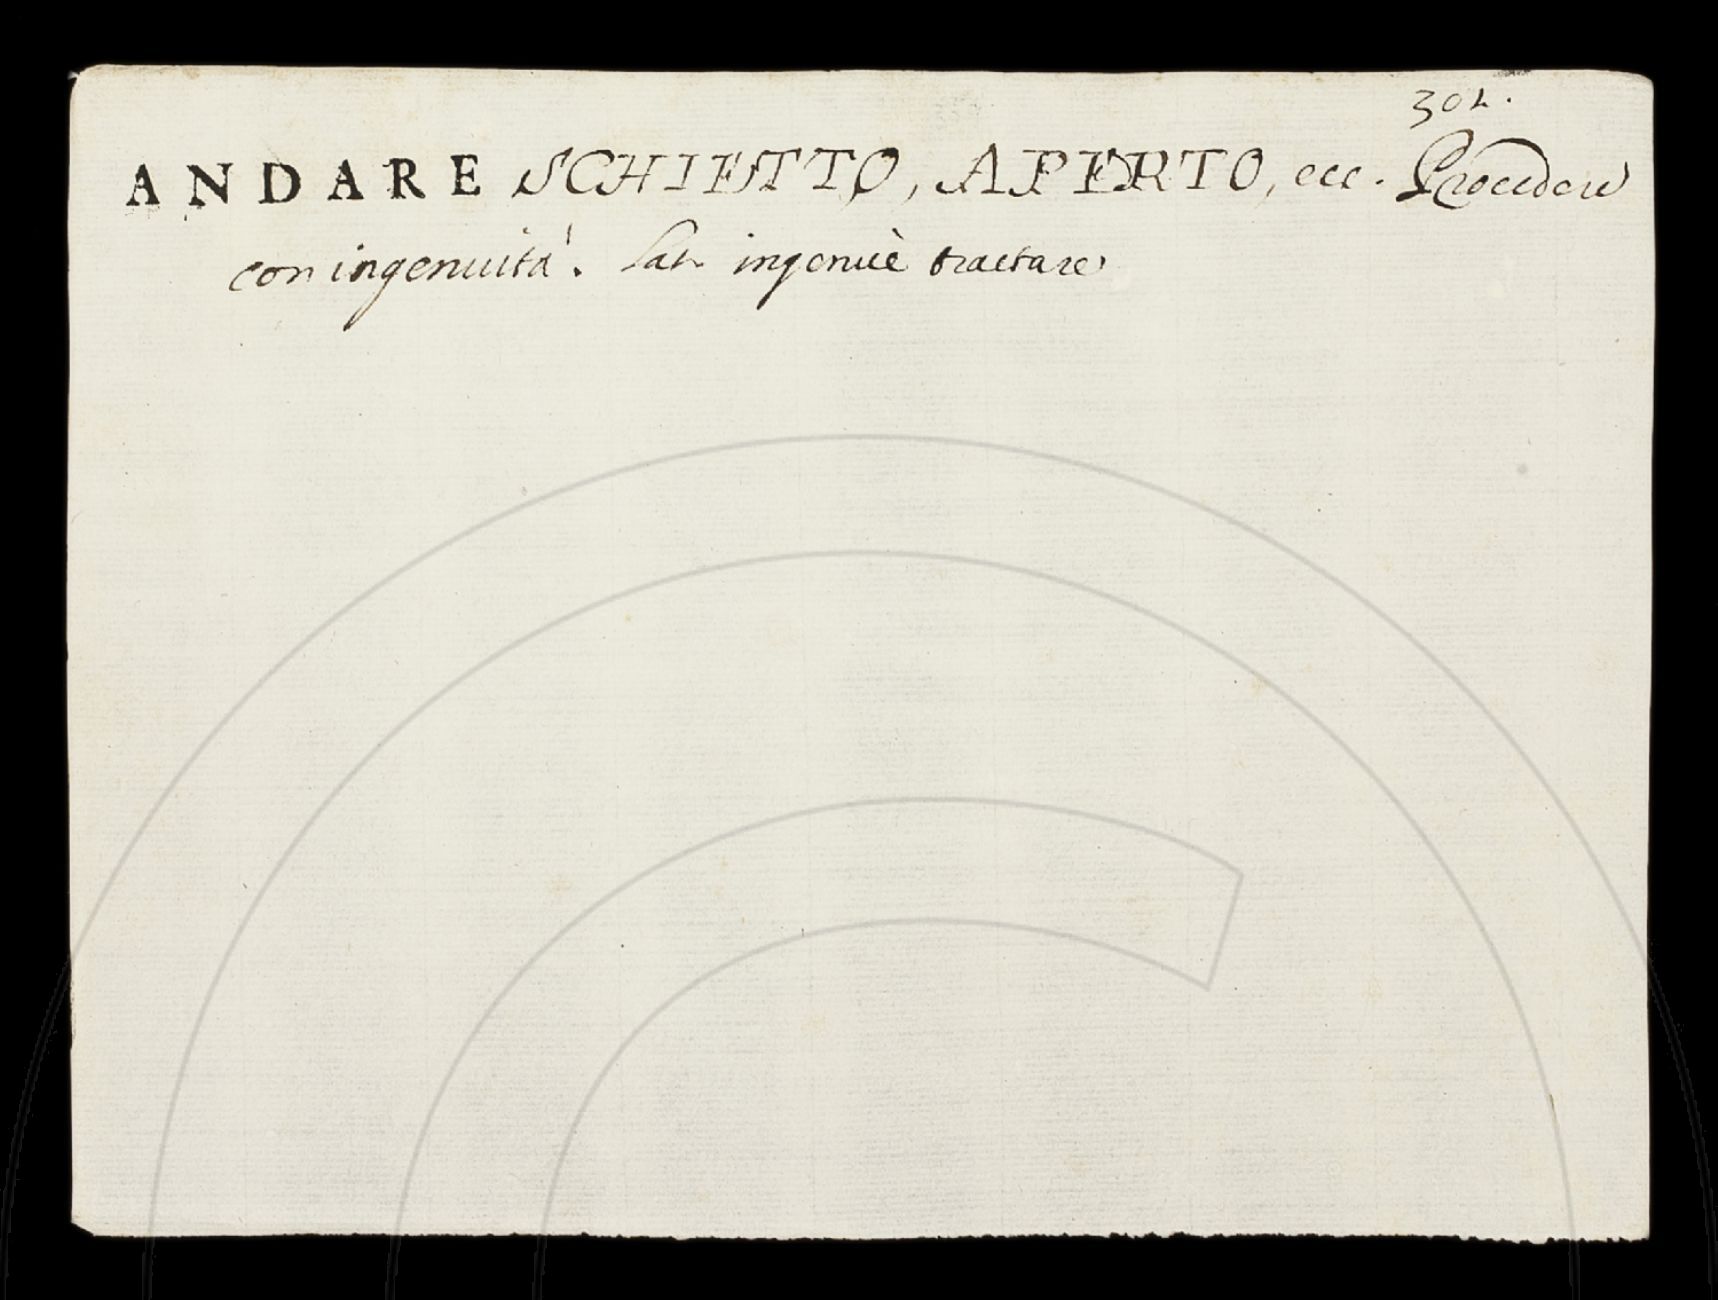 302.
ANDARE SCHIETTO, APERTO, ecc. Procedere
con ingenuità. Lat. ingenuè tractare